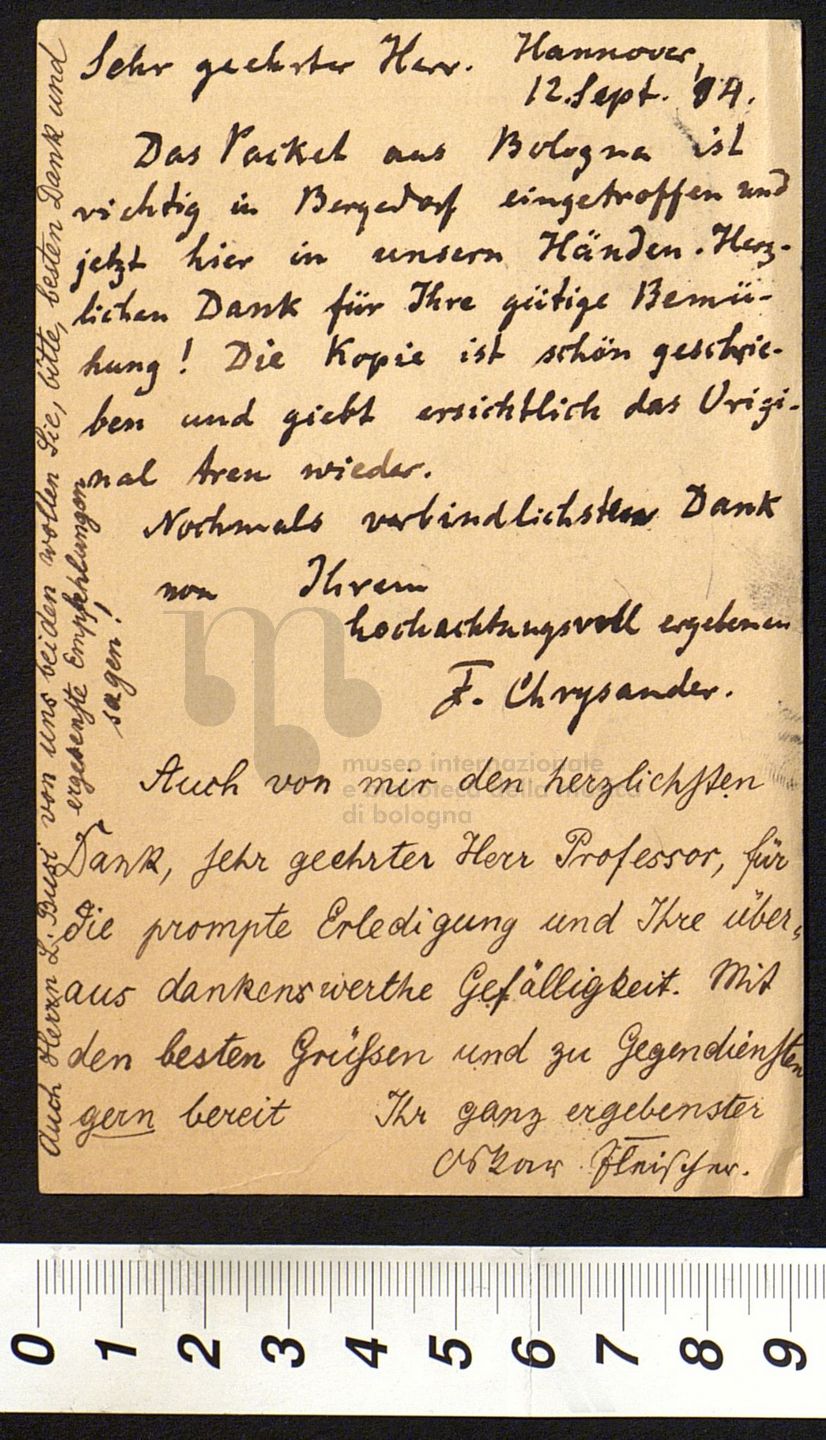 Sehr geehrter Herr. Hannover,
12. Sept. 94.
Das Packet aus Bologna ist
richtig in Bergedorf eingetroffen und
jetzt hier in unsern Händen. Herz-
lichen Dank für Ihre gütige Bemü-
hung! Die Kopie ist schön geschrie-
ben und giebt ersichtlich das Origi-
nal treu wieder.
Nochmals verbindlichsten Dank
von Ihrem
hochachtungsvoll ergebenen
F. Chrysander.
Auch von mir den herzlichsten
Dank, sehr geehrter Herr Professor, für
die prompte Erledigung und Ihre über-
aus dankenswerthe Gefälligkeit. Mit
den besten Grüßen und zu Gegendiensten
gern bereit Ihr ganz ergebenster
Oskar Fleischer.
Auch Herrn L. Busi von uns beiden wollen Sie, bitte, besten Dank und
ergebenste Empfehlungen
sagen!
museo internazionale
e biblioteca della musica
di bologna
0 1 2 3 4 5 6 7 8 9